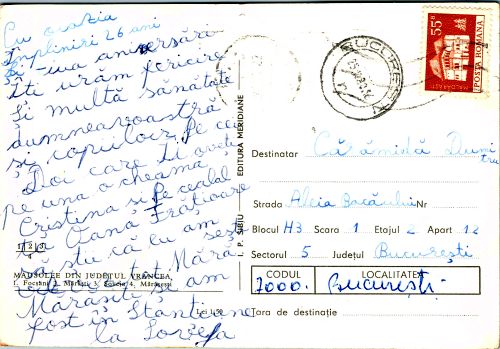 Cu ocazia
împliniri 26 ani
aniversări
Îți urăm fericire
Și multă sănătate
dumneavoastră
și copiilor pe cei
Doi care îi aveți
pe una o cheamă
Cristina și pe cealal
ta Oana Frățioare
să știi că eu am
Mărășești am
fost în
la
1 2 3
4
MAUSOLEE DIN JUDEȚUL VRANCEA
1. Focșani 2. Mărăști 3. Soveja 4. Mărășești
Lei 1,50
I. P. SIBIU EDITURA MERIDIANE
BUCUREȘTI
55 B
POSTA ROMANA
MĂLDĂREȘTI
Destinatar Cărămidă Dumi
tru
Strada Aleia Bacăului Nr
Blocul H3 Scara 1 Etajul 2 Apart 12
Sectorul 5 Județul București
CODUL LOCALITATEA
7000. București
Țara de destinație